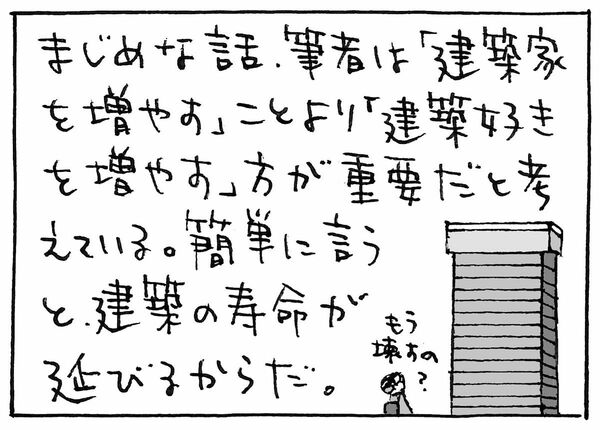 まじめな話、筆者は「建築家
を増やす」ことより「建築好き
を増やす」方が重要だと考
えている。簡単に言う
と、建築の寿命が
延びるからだ。
もう
壊すの?